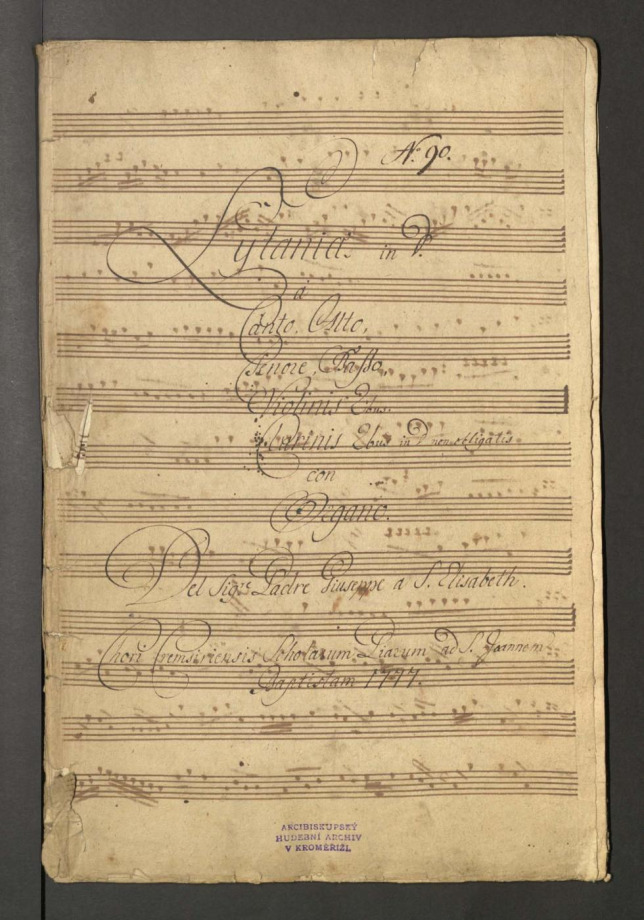 6
No. 90.
Lytania in D.
à
Canto, Alto,
Tenore, Basso,
Violinis 2bus.
Clarinis 2bus in D non obligatis
con
Organo.
Del Sigre. Padre Giuseppe a S. Elisabeth.
Chori Cremsiriensis Scholarum Piarum ad S. Joannem
Baptistam 1747.
ARCIBISKUPSKÝ
HUDEBNÍ ARCHIV
V KROMĚŘÍŽI.